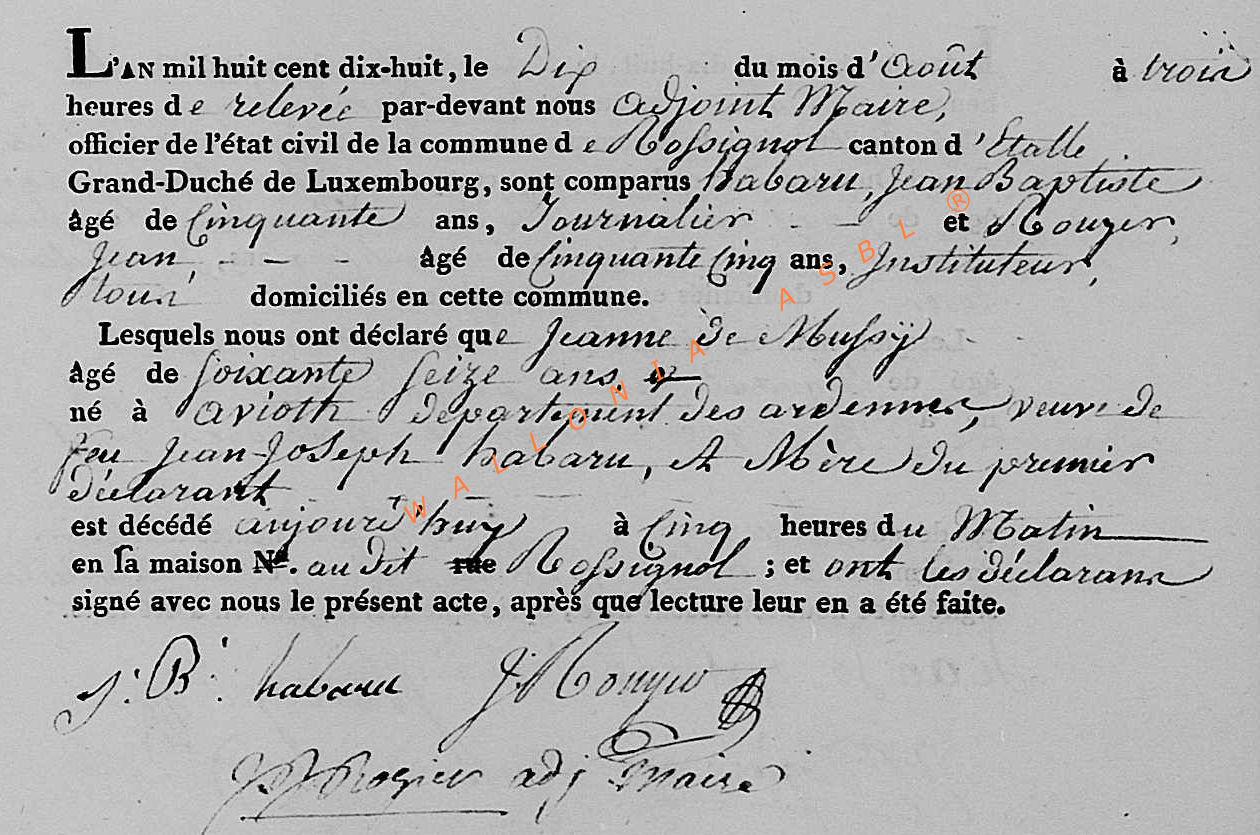 L'AN mil huit cent dix-huit, le Dix du mois d'Août à trois
heures de relevée par-devant nous adjoint Maire,
officier de l'état civil de la commune de Rossignol canton d'Etalle
Grand-Duché de Luxembourg, sont comparus habaru, Jean Baptiste
âgé de Cinquante ans, Journalier - - et Rouyer,
Jean, - - - âgé de Cinquante Cinq ans, Instituteur,
tous domiciliés en cette commune.
Lesquels nous ont déclaré que Jeanne de Mussÿ
âgé de soixante seize ans
né à avioth département des ardennes, veuve de
feu Jean-Joseph habaru, et Mère du premier
déclarant
est décédé aujourd'huy à Cinq heures du Matin
en sa maison Nº. au dit rue Rossignol ; et ont les déclarans
signé avec nous le présent acte, après que lecture leur en a été faite.
J. B. habaru J. Rouyer
Rogier adj Maire
WALLONIA ASBL ®